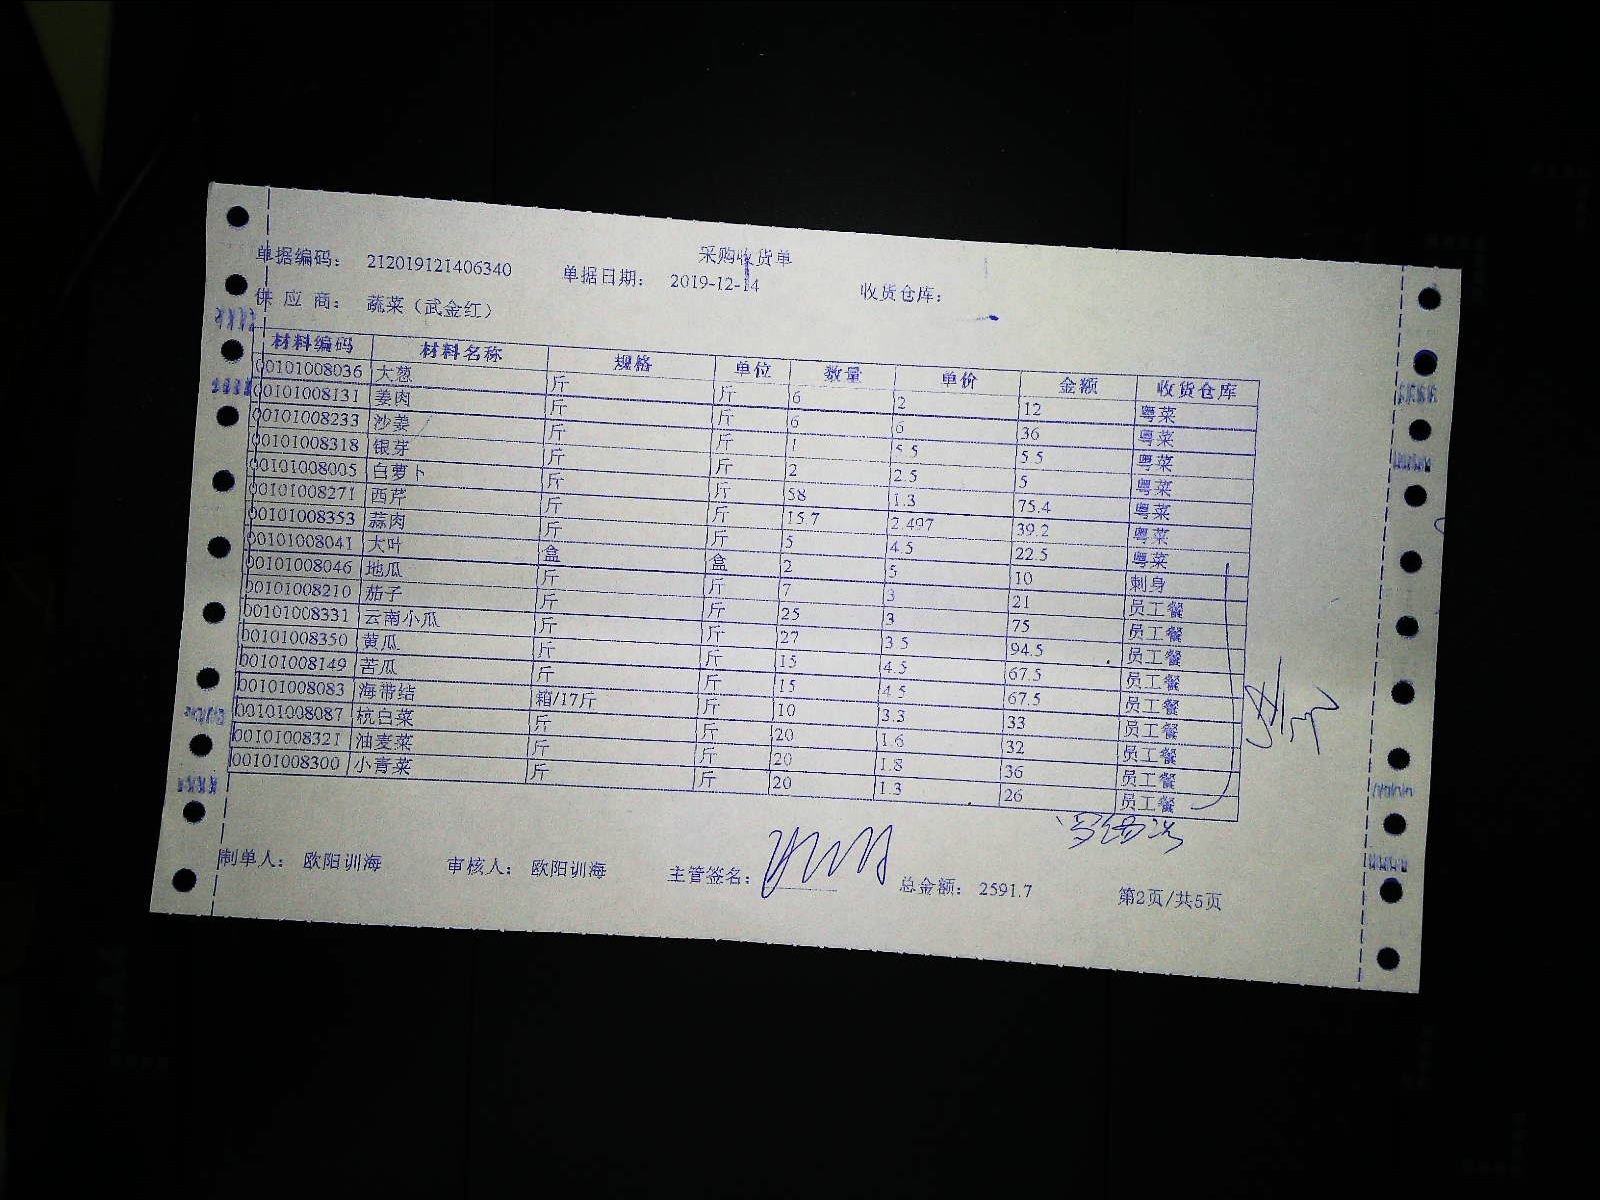 采购收货单
单据编码： 212019121406340 单据日期： 2019-12-14 收货仓库：
供 应 商： 蔬菜（武金红）
材料编码 材料名称 规格 单位 数量 单价 金额 收货仓库
00101008036 大葱 斤 斤 6 2 12 粤菜
00101008131 姜肉 斤 斤 6 6 36 粤菜
00101008233 沙姜 斤 斤 1 5.5 5.5 粤菜
00101008318 银芽 斤 斤 2 2.5 5 粤菜
00101008005 白萝卜 斤 斤 58 1.3 75.4 粤菜
00101008271 西芹 斤 斤 15.7 2.497 39.2 粤菜
00101008353 蒜肉 斤 斤 5 4.5 22.5 粤菜
00101008041 大叶 盒 盒 2 5 10 刺身
00101008046 地瓜 斤 斤 7 3 21 员工餐
00101008210 茄子 斤 斤 25 3 75 员工餐
00101008331 云南小瓜 斤 斤 27 3.5 94.5 员工餐
00101008350 黄瓜 斤 斤 15 4.5 67.5 员工餐
00101008149 苦瓜 斤 斤 15 4.5 67.5 员工餐
00101008083 海带结 箱/17斤 斤 10 3.3 33 员工餐
00101008087 杭白菜 斤 斤 20 1.6 32 员工餐
00101008321 油麦菜 斤 斤 20 1.8 36 员工餐
00101008300 小青菜 斤 斤 20 1.3 26 员工餐
制单人： 欧阳训海 审核人： 欧阳训海 主管签名： 总金额： 2591.7 第2页/共5页